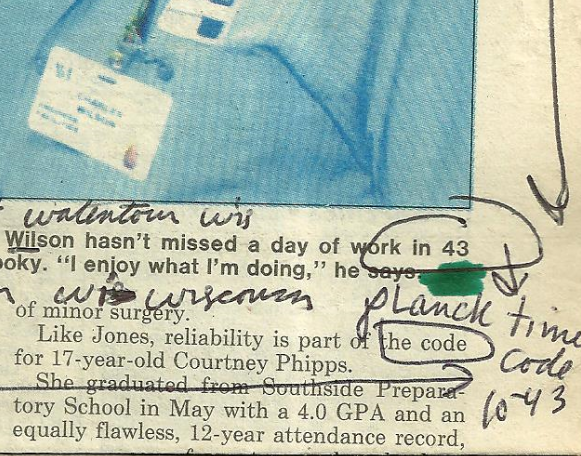 CHARLES
WILSON
watertown wis
Wilson hasn't missed a day of work in 43
ooky. “I enjoy what I'm doing,” he says.
wis wisconsin
planck time
code
10-43
of minor surgery.
Like Jones, reliability is part of the code
for 17-year-old Courtney Phipps.
She graduated from Southside Prepara-
tory School in May with a 4.0 GPA and an
equally flawless, 12-year attendance record,